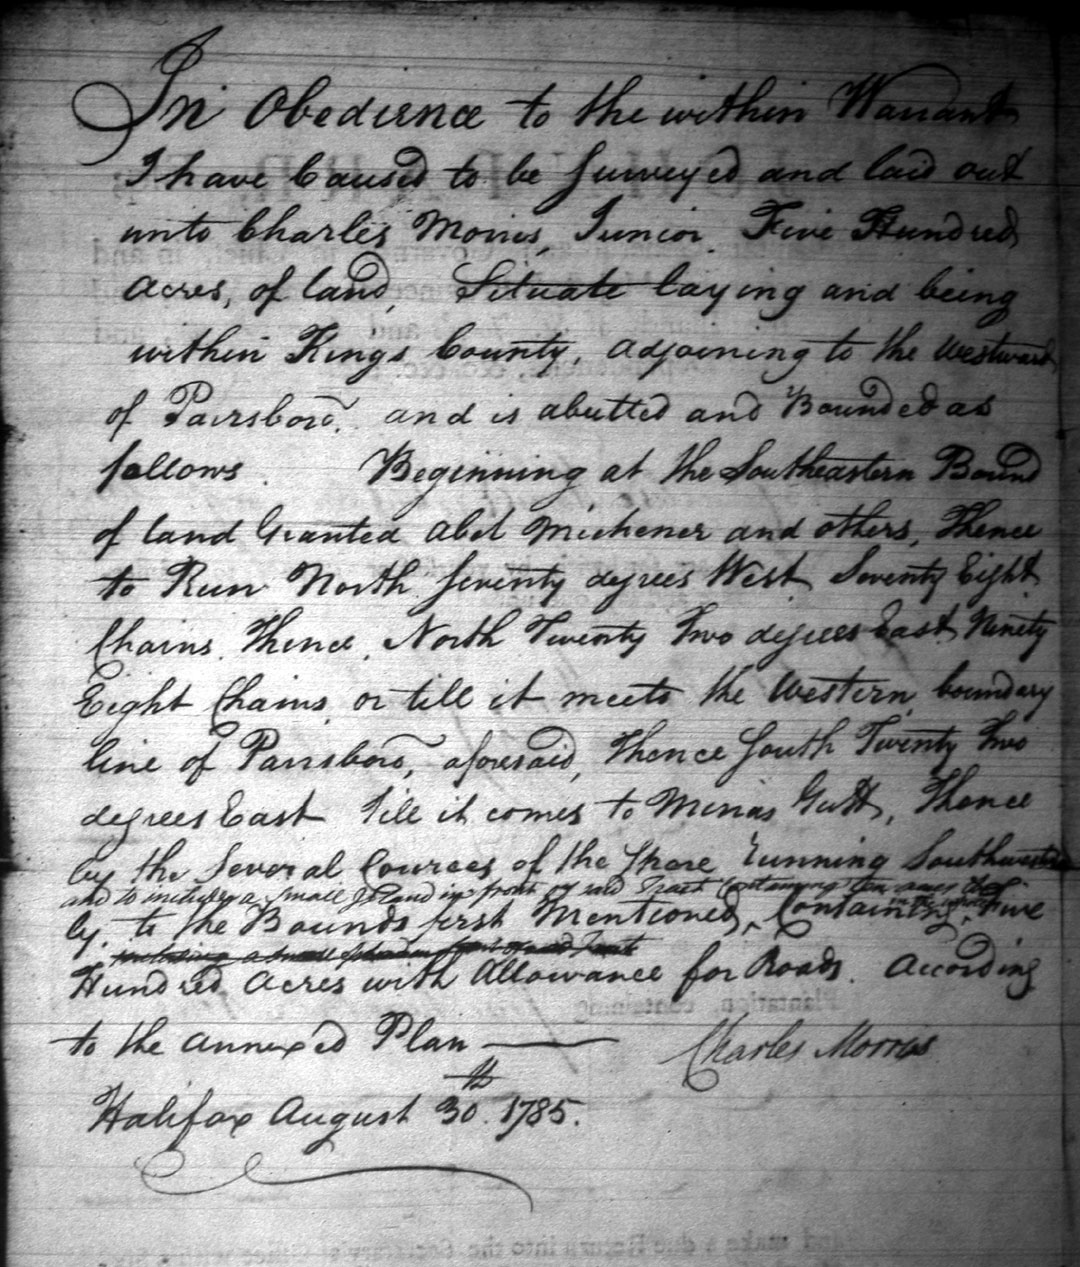 In Obedience to the within Warrant
I have Caused to be Surveyed and laid out
unto Charles Morris, Junior. Five Hundred
Acres, of land, Situate laying and being
within Kings County, adjoining to the Westward
of Parrsboro, and is abutted and Bounded as
follows. Beginning at the Southeastern Bound
of land Granted Abel Michener and others, Thence
to Run North Seventy degrees West Seventy Eight
Chains, Thence, North Twenty Two degrees East Ninety
Eight Chains or till it meets the Western boundary
line of Parrsboro, aforesaid, Thence South Twenty Two
degrees East till it comes to Minas Gutt, Thence
by the Several Cources of the Shore running Southwester
and to include a small Island in front of said Tract Containing ten acres
ly to the Bounds first Mentioned, Containing in the whole Five
including a small Island in front of said Tract
Hundred Acres with Allowance for Roads. According
to the annexed Plan Charles Morris
Halifax August 30th. 1785.
Plantation, containing
and make a due Return into the Secretary's Office